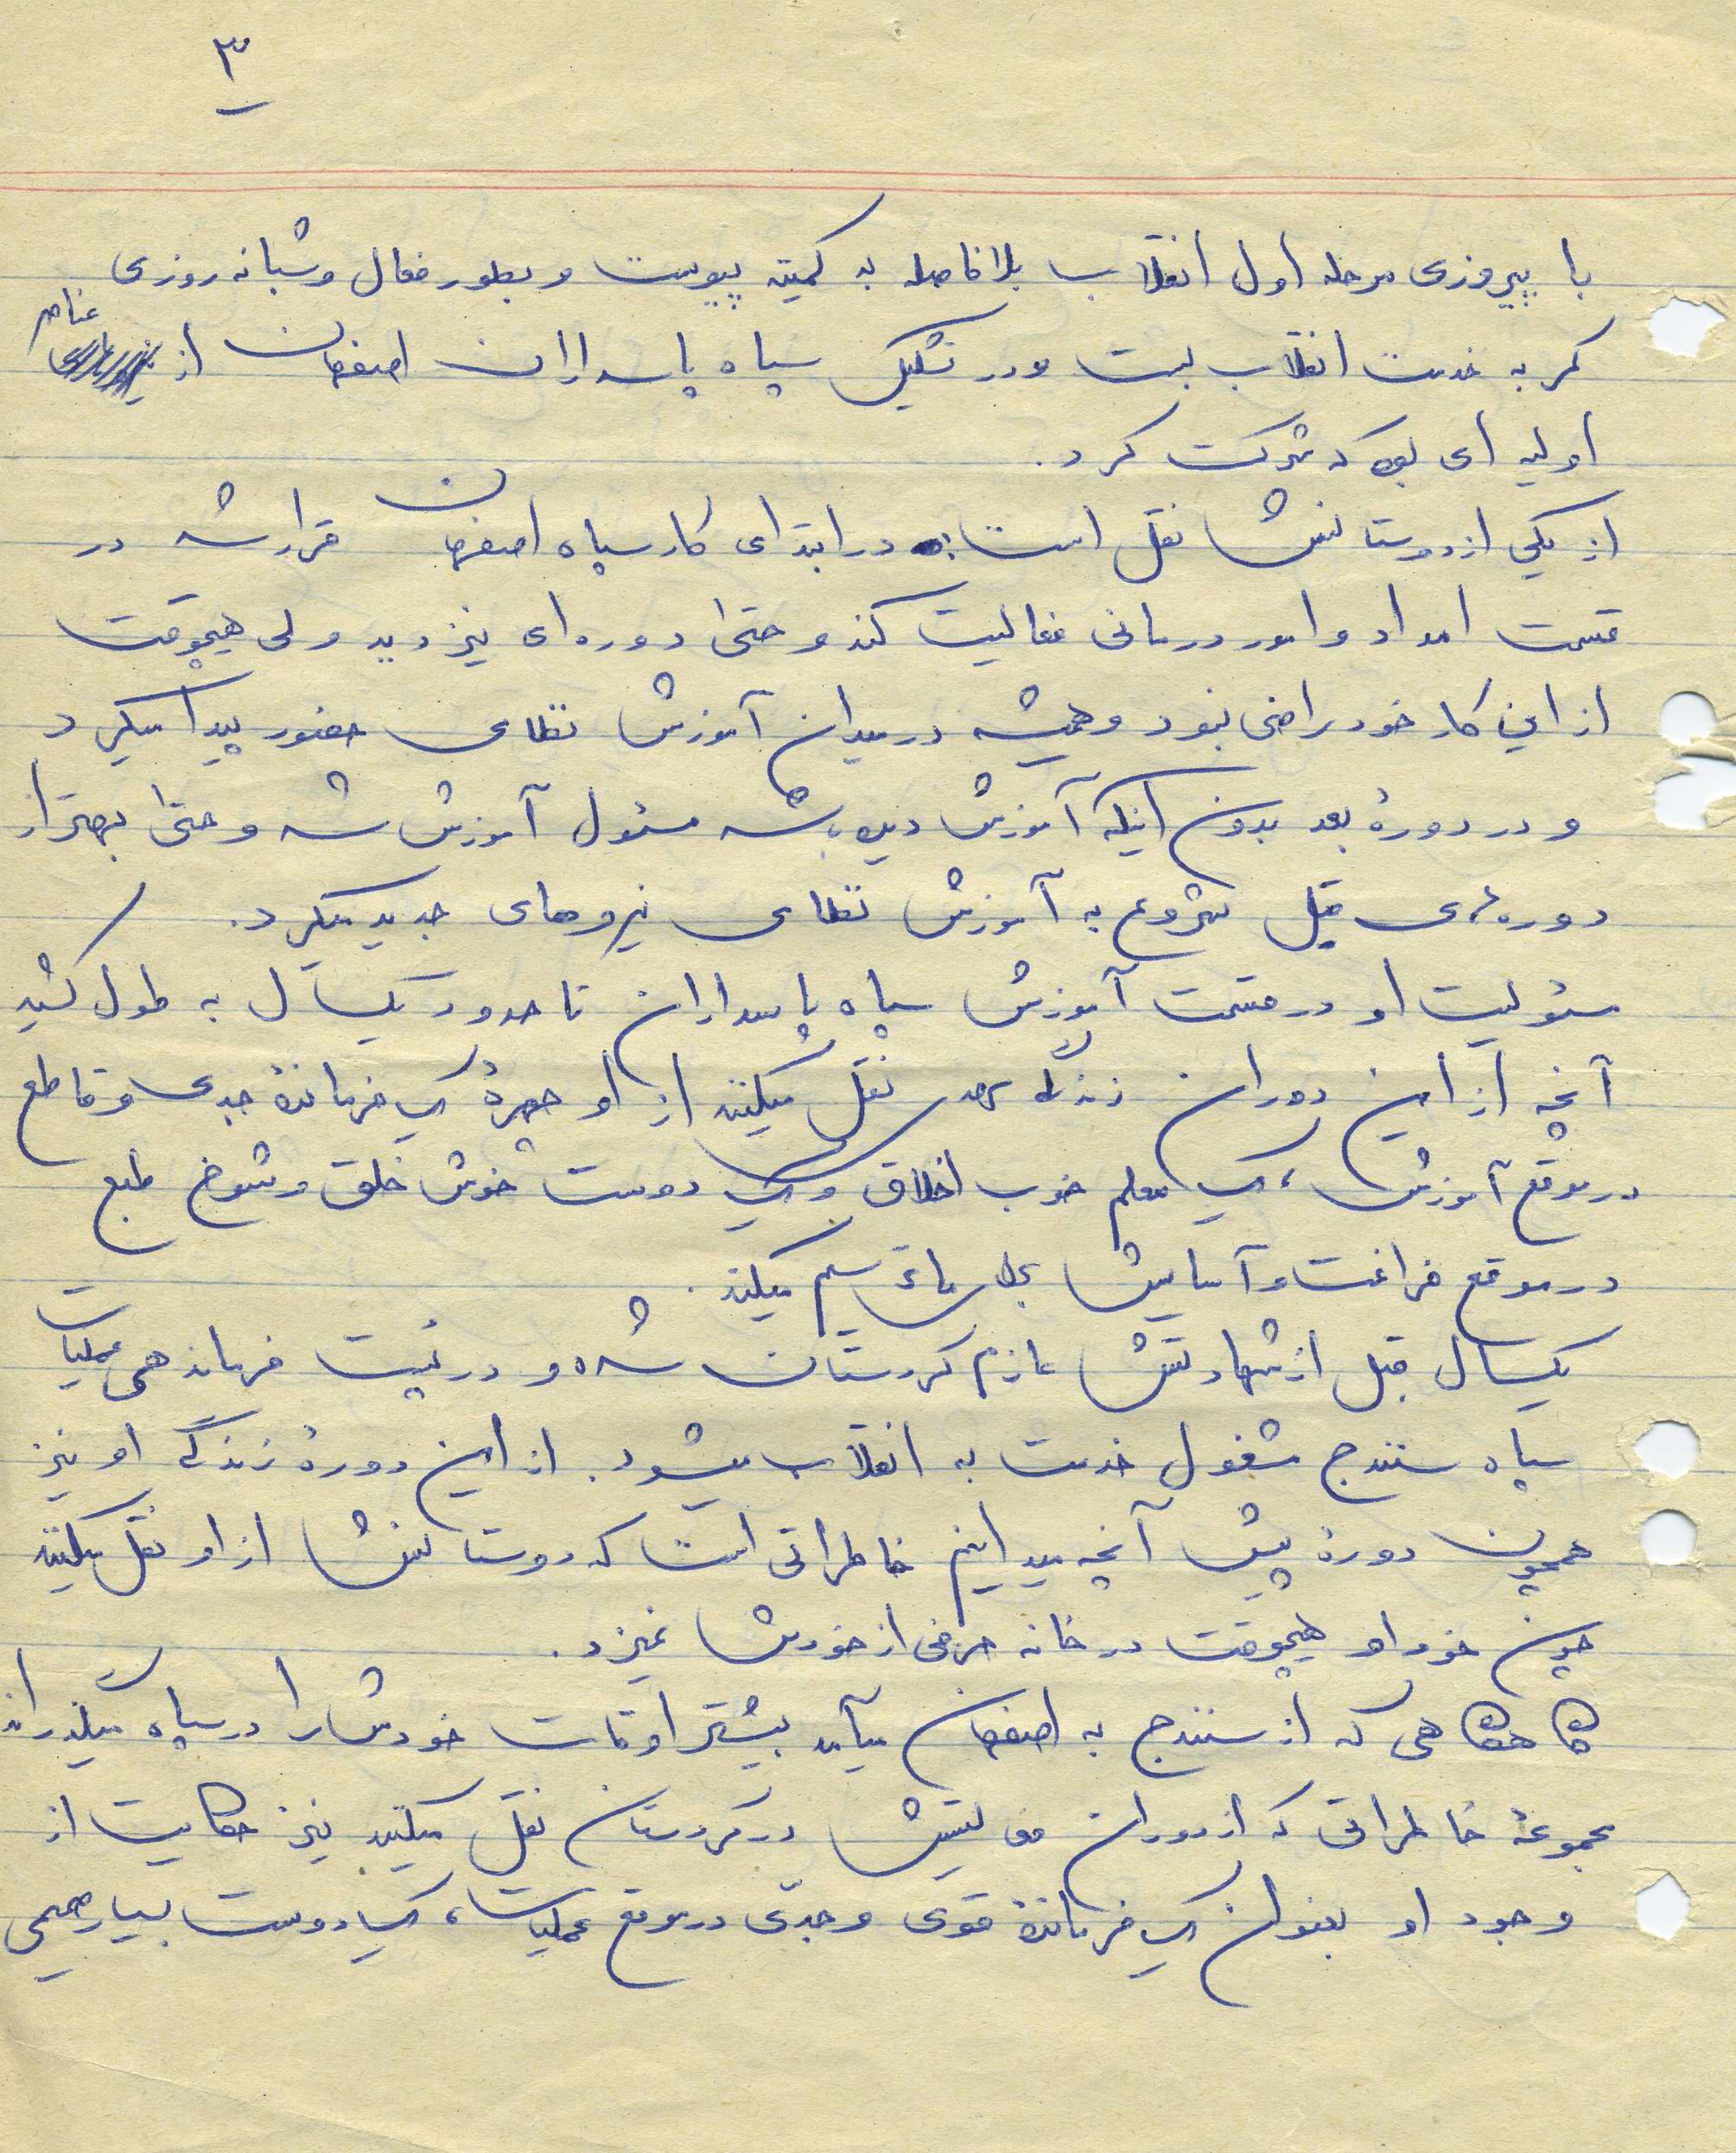 ۳
با پیروزی مرحله اول انقلاب بلافاصله به کمیته پیوست و بطور فعال و شبانه روزی
کمر به خدمت انقلاب بست و در تشکیل سپاه پاسداران اصفهان از عناصر
اولیه ای بود که شرکت کرد.
از یکی از دوستانش نقل است: در ابتدای کار سپاه اصفهان قرار شد در
قسمت امداد و امور درمانی فعالیت کند و حتی دوره‌ای نیز دید ولی هیچوقت
از این کار خود راضی نبود و همیشه در میدان آموزش نظامی حضور پیدا میکرد
و در دورهٔ بعد بدون اینکه آموزش دیده باشد مسئول آموزش شد و حتی بهتر از
دوره‌های قبل شروع به آموزش نظامی نیروهای جدید میکرد.
مسئولیت او در قسمت آموزش سپاه پاسداران تا حدود یکسال به طول کشید
آنچه از این دوران زندگی نقل میکنند از او چهرهٔ یک فرماندهٔ جدی و قاطع
در موقع آموزش، یک معلم خوب اخلاق و یک دوست خوش خلق و شوخ طبع
در موقع فراغت و آسایش برای ما ترسیم میکند.
یکسال قبل از شهادتش عازم کردستان شده و در پُست فرماندهی عملیات
سپاه سنندج مشغول خدمت به انقلاب میشود. از این دورهٔ زندگی او نیز
همچون دورهٔ پیش آنچه میدانیم خاطراتی است که دوستانش از او نقل میکنند
چون خود او هیچوقت در خانه حرفی از خودش نمیزد.
گاهگاهی که از سنندج به اصفهان میآمد بیشتر اوقات خودش را در سپاه میگذراند
مجموعهٔ خاطراتی که از دوران فعالیتش در کردستان نقل میکنند نیز حکایت از
وجود او بعنوان یک فرماندهٔ قوی و جدّی در موقع عملیات، یک دوست بسیار صمیمی